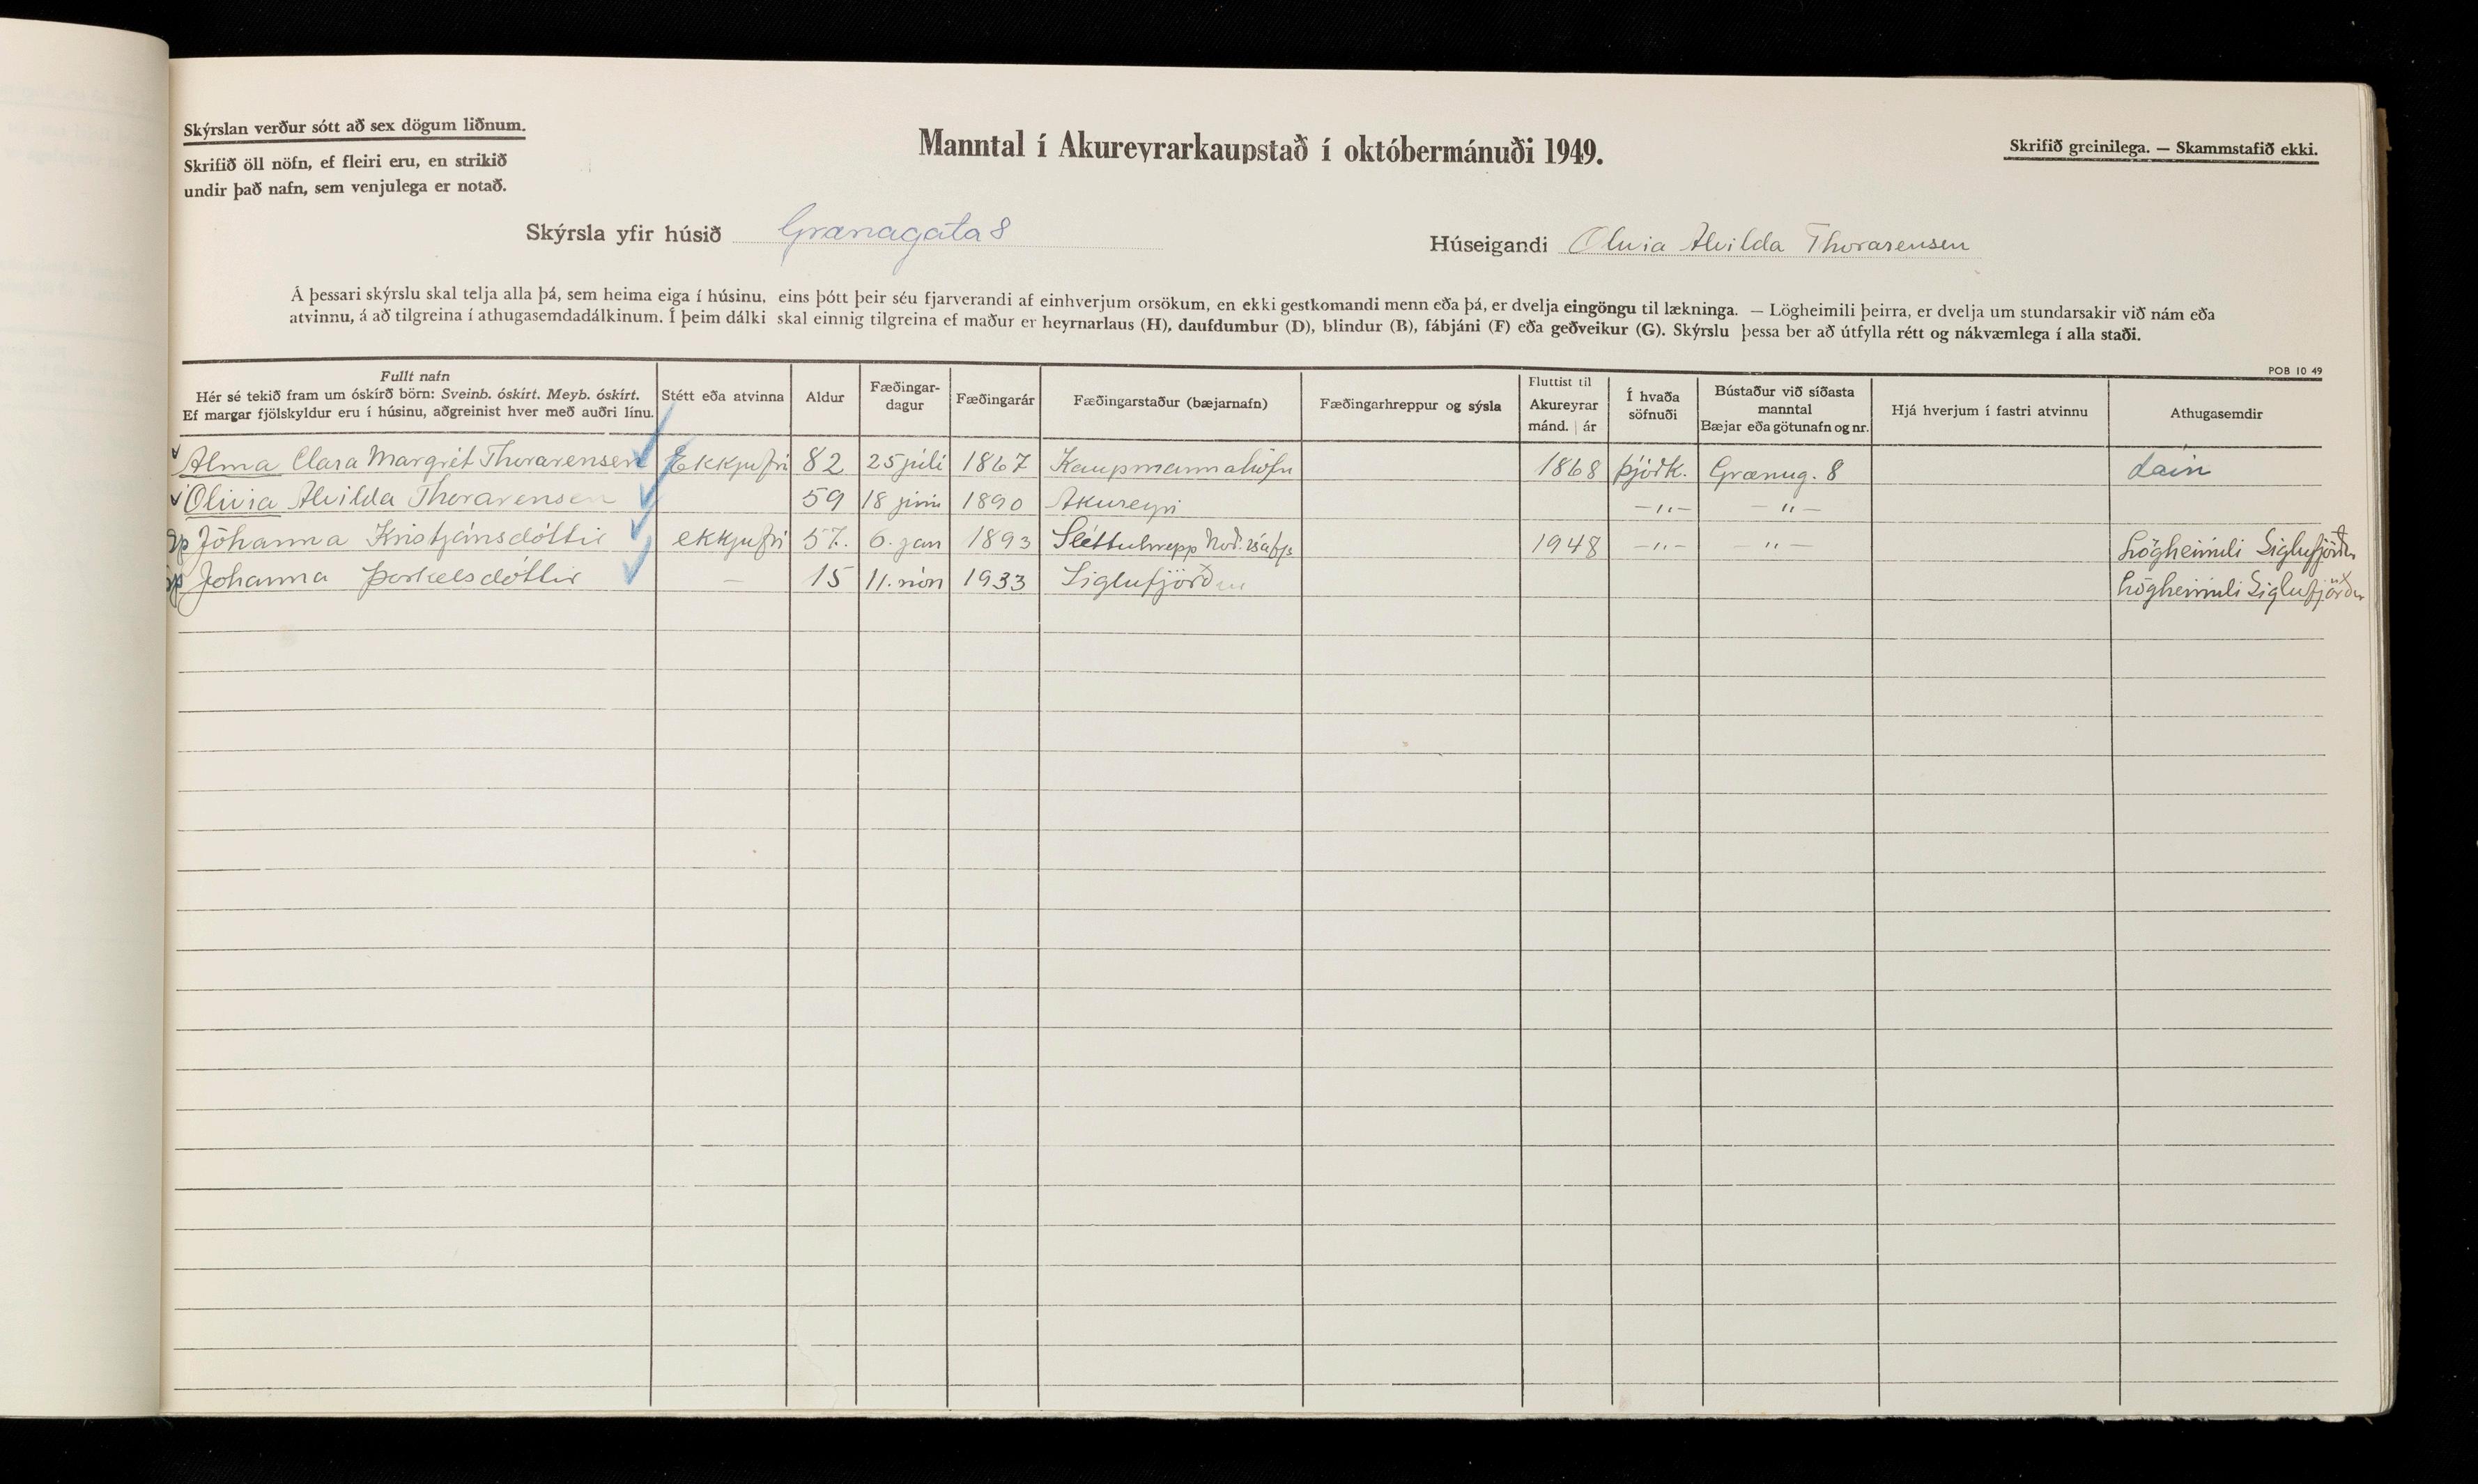 Skýrslan verður sótt að sex dögum liðnum.
Skrifið öll nöfn, ef fleiri eru, en strikið
undir það nafn, sem venjulega er notað.
Manntal í Akureyrarkaupstað í októbermánuði 1949.
Skrifið greinilega. — Skammstafið ekki.
Skýrsla yfir húsið Grænagata 8
Húseigandi Olivia Alvilda Thorarensen
Á þessari skýrslu skal telja alla þá, sem heima eiga í húsinu, eins þótt þeir séu fjarverandi af einhverjum orsökum, en ekki gestkomandi menn eða þá, er dvelja eingöngu til lækninga. — Lögheimili þeirra, er dvelja um stundarsakir við nám eða
atvinnu, á að tilgreina í athugasemdadálkinum. Í þeim dálki skal einnig tilgreina ef maður er heyrnarlaus (H), daufdumbur (D), blindur (B), fábjáni (F) eða geðveikur (G). Skýrslu þessa ber að útfylla rétt og nákvæmlega í alla staði.
POB 10 49
Fullt nafn
Hér sé tekið fram um óskírð börn: Sveinb. óskírt. Meyb. óskírt.
Ef margar fjölskyldur eru í húsinu, aðgreinist hver með auðri línu.
Stétt eða atvinna
Aldur
Fæðingar-
dagur
Fæðingarár
Fæðingarstaður (bæjarnafn)
Fæðingarhreppur og sýsla
Fluttist til
Akureyrar
mánd. | ár
Í hvaða
söfnuði
Bústaður við síðasta
manntal
Bæjar eða götunafn og nr.
Hjá hverjum í fastri atvinnu
Athugasemdir
Alma Clara Margrét Thorarensen Ekkjufrú 82 25 júlí 1867 Kaupmannahöfn 1868 Þjóðk. Grænug. 8 dáin
Olivia Alvilda Thorarensen 59 18 júní 1890 Akureyri —"— —"—
Jóhanna Kristjánsdóttir ekkjufrú 57. 6. jan 1893 Sléttuhrepp 1948 —"— —"— Lögheimili Siglufjörður
Jóhanna Þorkelsdóttir — 15 11. nóv 1933 Siglufjörður Lögheimili Siglufjörður